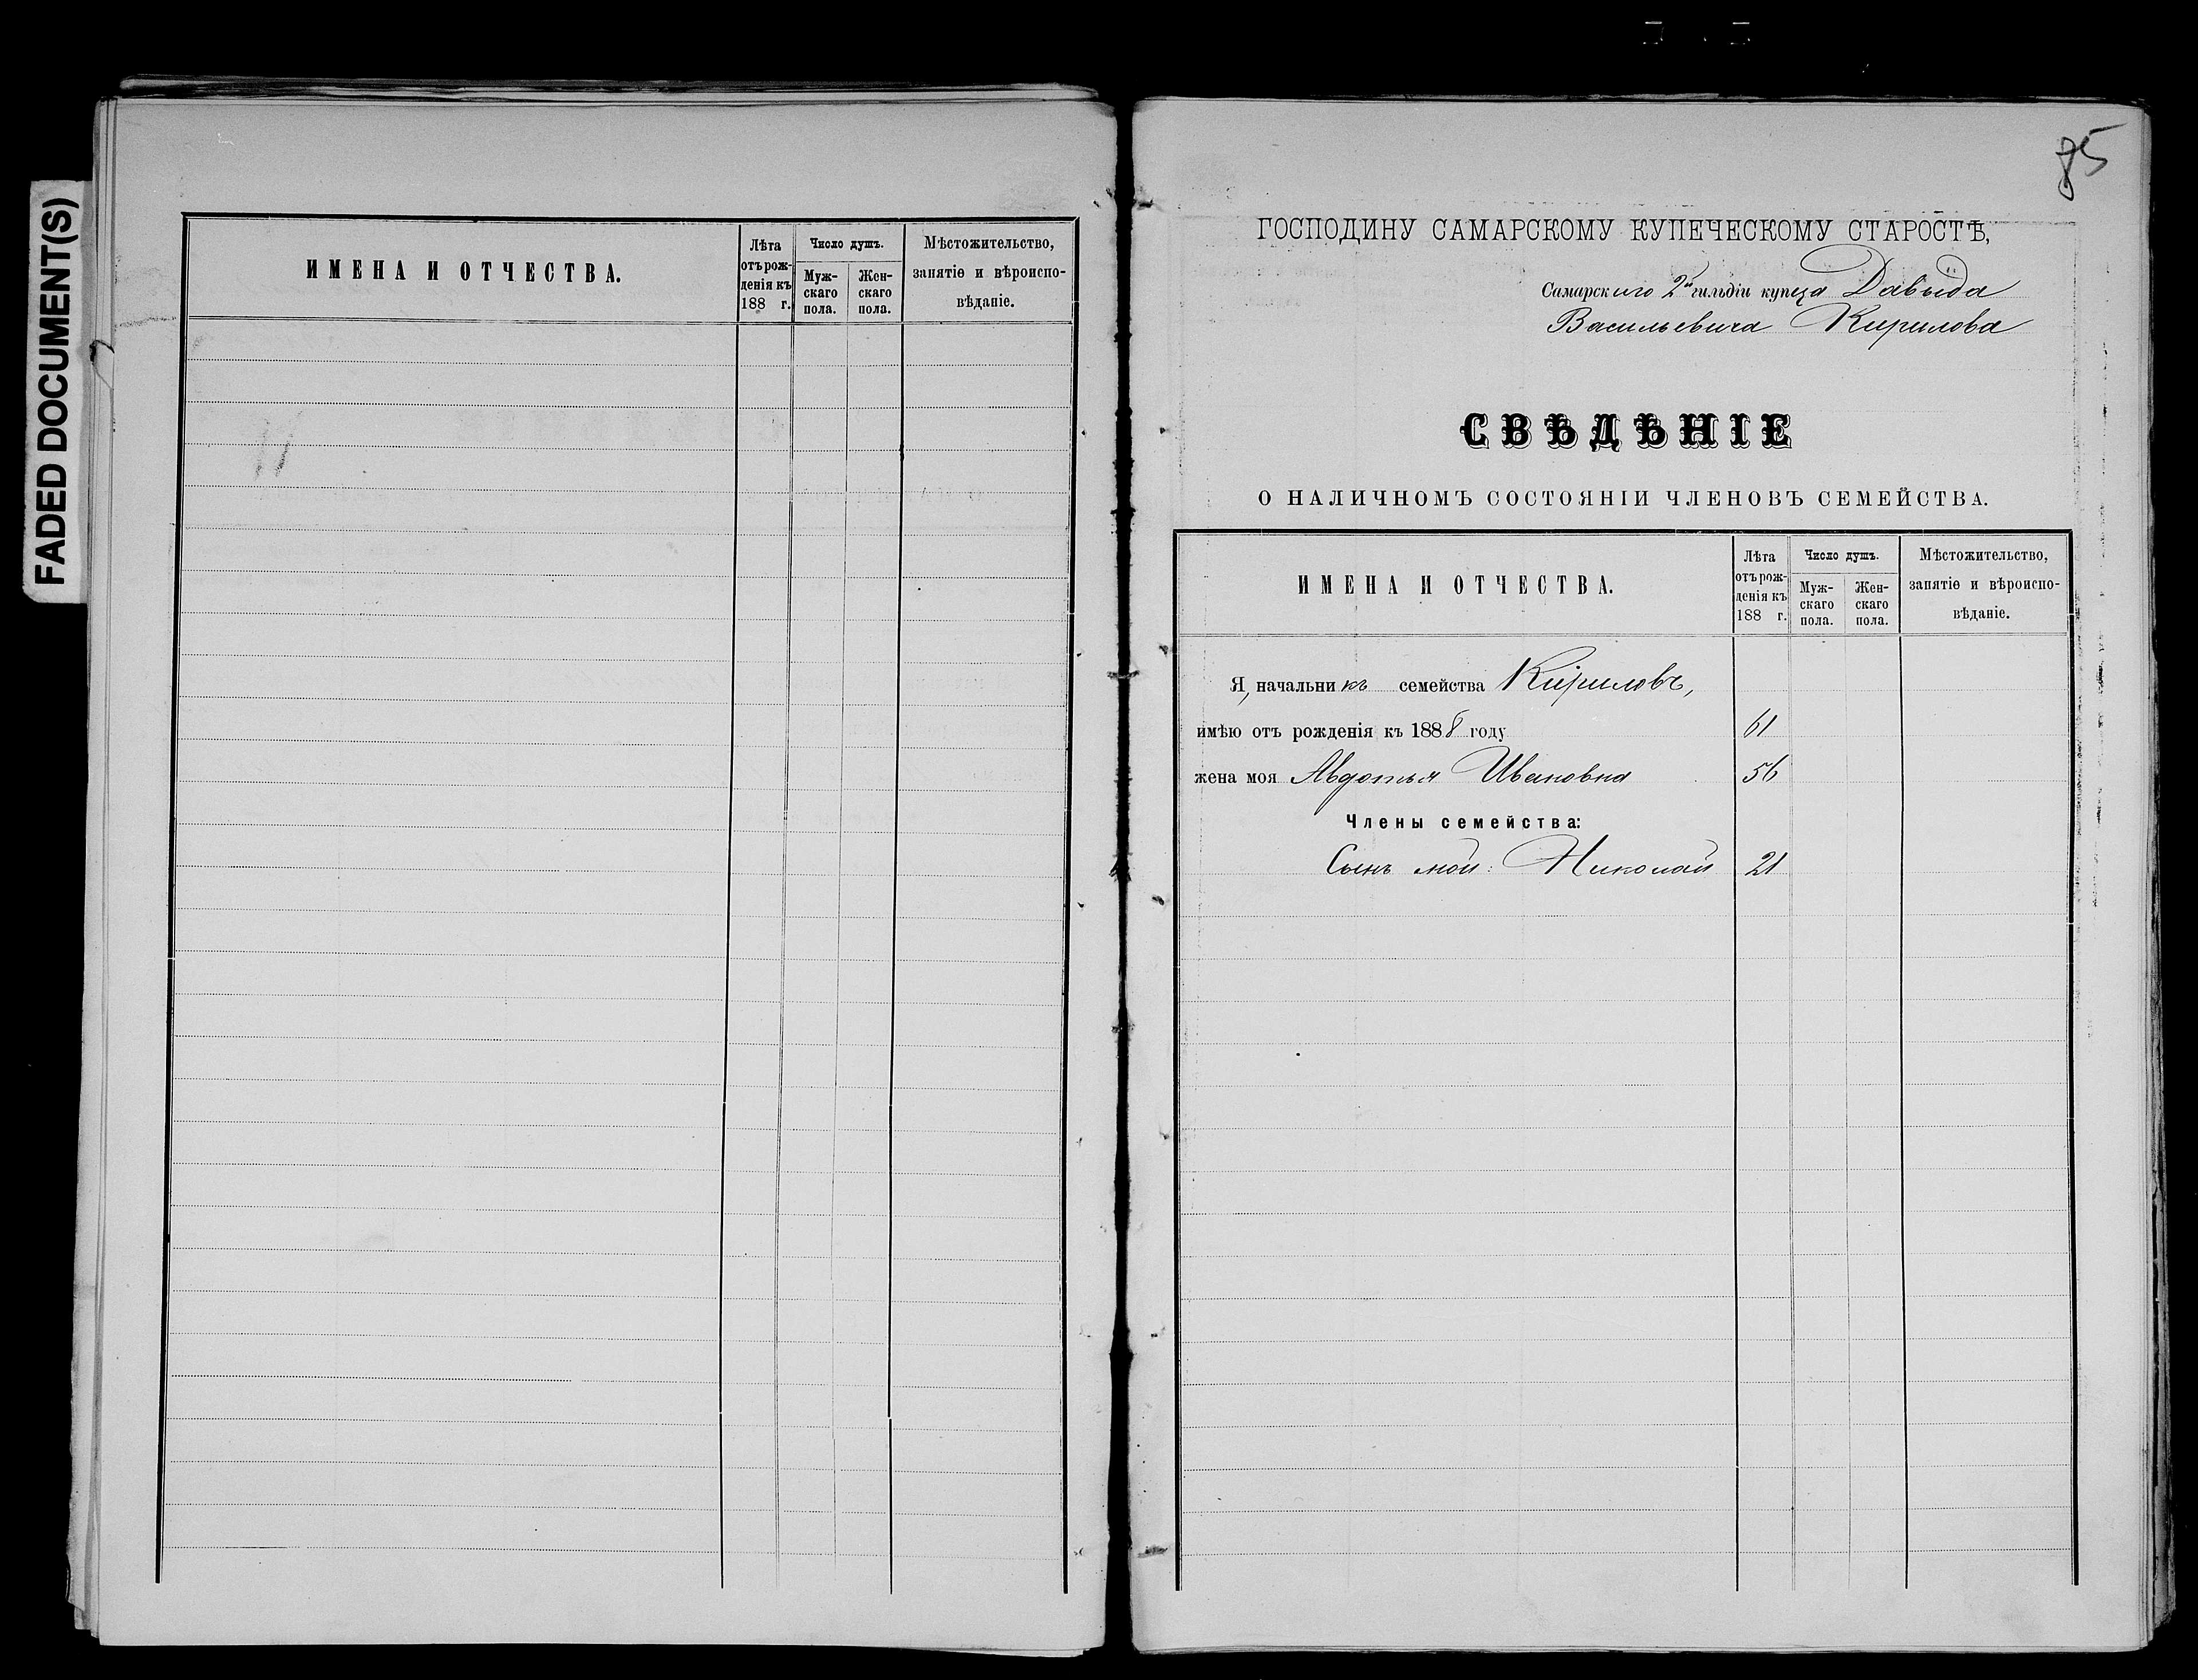 FADED DOCUMENT(S)
ИМЕНА И ОТЧЕСТВА.
Лѣта
отъ рож-
денія къ
188 г.
Число душъ.
Муж-
скаго
пола.
Жен-
скаго
пола.
Мѣстожительство,
занятіе и вѣроиспо-
вѣданіе.
85
ГОСПОДИНУ САМАРСКОМУ КУПЕЧЕСКОМУ СТАРОСТѢ,
Самарского 2й гильдіи купца Давыда
Васильевича Кирилова
СВѢДѢНІЕ
О НАЛИЧНОМЪ СОСТОЯНІИ ЧЛЕНОВЪ СЕМЕЙСТВА.
ИМЕНА И ОТЧЕСТВА.
Лѣта
отъ рож-
денія къ
188 г.
Число душъ.
Муж-
скаго
пола.
Жен-
скаго
пола.
Мѣстожительство,
занятіе и вѣроиспо-
вѣданіе.
Я, начальникъ семейства Кириловъ,
имѣю отъ рожденія къ 1888 году 61
жена моя Авдотья Ивановна 56
Члены семейства:
Сынъ мой: Николай 21